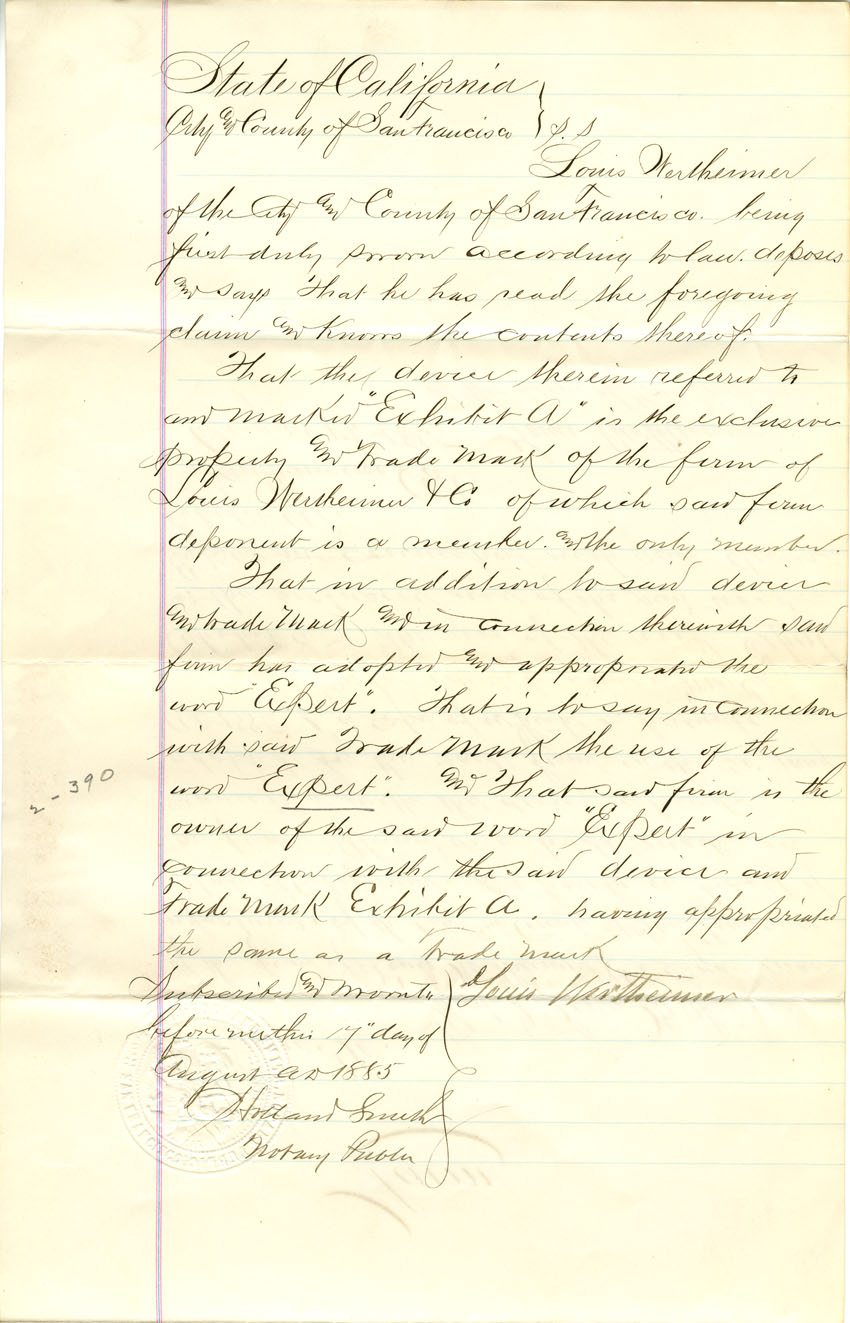 State of California
City and County of San Francisco } S.S
Louis Wertheimer
of the City and County of San Francisco. being
first duly sworn according to law. deposes
and says That he has read the foregoing
claim and knows the contents thereof.
That the device therein referred to
and marked "Exhibit A" is the exclusive
property and Trade Mark of the firm of
Louis Wertheimer & Co of which said firm
deponent is a member. and the only member.
That in addition to said device
and trade Mark and in connection therewith said
firm has adopted and appropriated the
word "Expert". That is to say in connection
with said Trade Mark the use of the
word "Expert". and That said firm is the
owner of the said word "Expert" in
connection with the said device and
Trade Mark Exhibit A. having appropriated
the same as a Trade Mark
2-390
Subscribed and Sworn to
before me this 17" day of
August AD 1885
Louis Wertheimer
Holland Smith
Notary Public